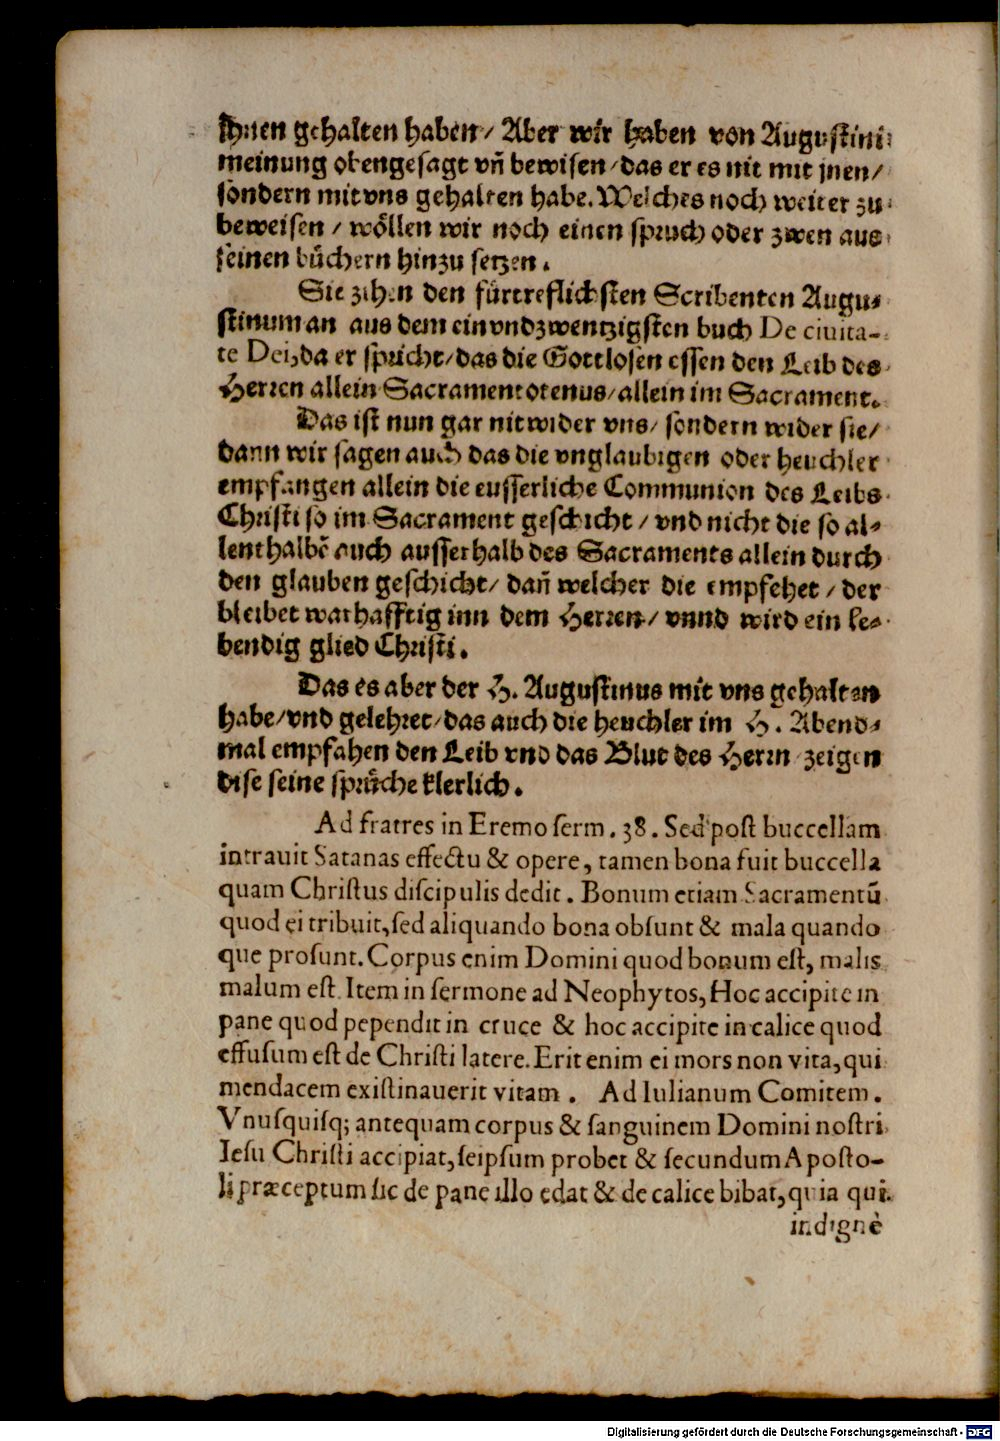 Ihnen gehalten haben/ Aber wir haben von Augustini
meinung obengesagt vñ bewisen/das er es nit mit jnen/
sondern mit vns gehalten habe. Welches noch weiter zu
beweisen / wöllen wir noch einen spruch oder zwen aus
seinen büchern hinzu setzen.
Sie zihen den fürtreflichsten Scribenten Augu-
stinum an aus dem ein vnd zwentzigsten buch De ciuita-
te Dei, da er spricht/das die Gottlosen essen den Leib des
Herren allein Sacramentotenus/allein im Sacrament.
Das ist nun gar nit wider vns/ sondern wider sie/
dann wir sagen auch das die vnglaubigen oder heuchler
empfangen allein die eusserliche Communion des Leibs
Christi so im Sacrament geschicht / vnd nicht die so al-
lenthalbē auch ausserhalb des Sacraments allein durch
den glauben geschicht/ dañ welcher die empfehet / der
bleibet warhafftig inn dem Herren/ vnnd wird ein le-
bendig glied Christi.
Das es aber der H. Augustinus mit vns gehalten
habe/vnd gelehret/das auch die heuchler im H. Abend-
mal empfahen den Leib vnd das Blut des Herrn zeigen
dise seine sprüche klerlich.
Ad fratres in Eremo ſerm. 38. Sed poſt buccellam
intrauit Satanas effectu & opere, tamen bona fuit buccella
quam Chriſtus diſcipulis dedit. Bonum etiam Sacramentū
quod ei tribuit, ſed aliquando bona obſunt & mala quando
que proſunt. Corpus enim Domini quod bonum eſt, malis
malum eſt. Item in ſermone ad Neophytos, Hoc accipite in
pane quod pependit in cruce & hoc accipite in calice quod
effuſum eſt de Chriſti latere. Erit enim ei mors non vita, qui
mendacem exiſtinauerit vitam. Ad Iulianum Comitem.
Vnuſquiſq; antequam corpus & ſanguinem Domini noſtri
Ieſu Chriſti accipiat, ſeipſum probet & ſecundum Apoſto-
li præceptum ſic de pane illo edat & de calice bibat, quia qui
indignè
Digitalisierung gefördert durch die Deutsche Forschungsgemeinschaft - DFG